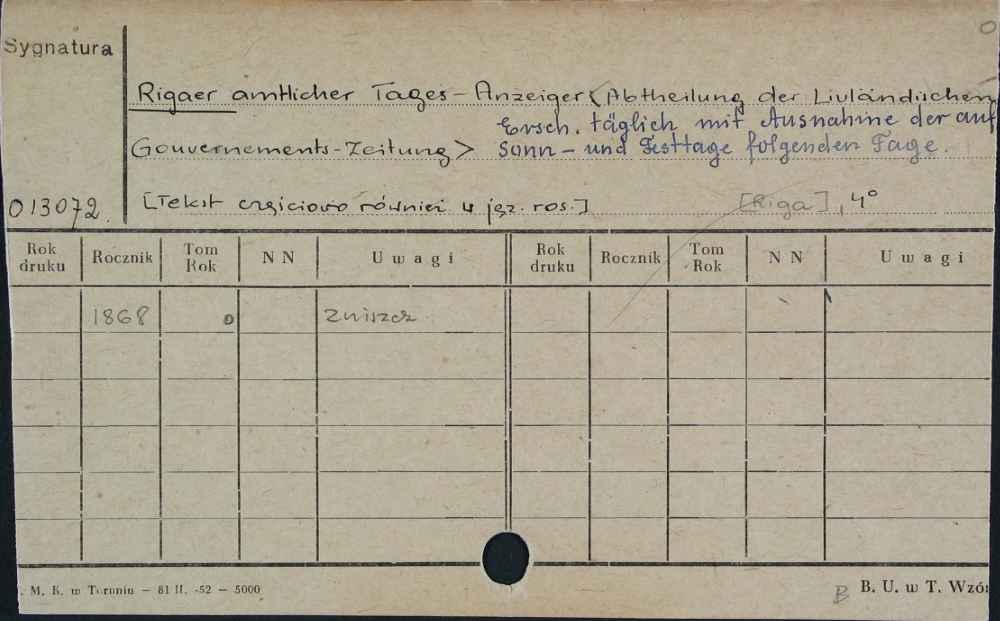 Sygnatura
Rigaer amtlicher Tages-Anzeiger <Abtheilung der Livländischen
Ersch. täglich mit Ausnahme der auf
Gouvernements-Zeitung> Sonn- und Festtage folgenden Tage.
013072. [Tekst częściowo również w jęz. ros.] [Riga], 4°
Rok druku Rocznik Tom Rok NN Uwagi Rok druku Rocznik Tom Rok NN Uwagi
1868 0 Zniszcz
. M. K. w Toruniu — 81 II. -52 — 5000 B B. U. w T. Wzór